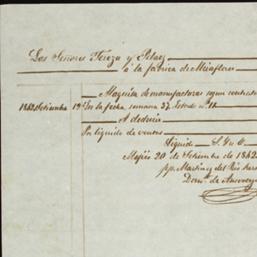 Los Señores Feoza y Pelaez
á la fabrica de Miraflores
Maquila de manufacturas segun contrato
1862 Setiembre 19 En la fecha, semana 37 Estado nº 11
A deducir
Por líquido de ventas
Líquido S. Y. u O.
Mejico 20 de Setiembre de 1862
pp. Martinez del Rio hermanos